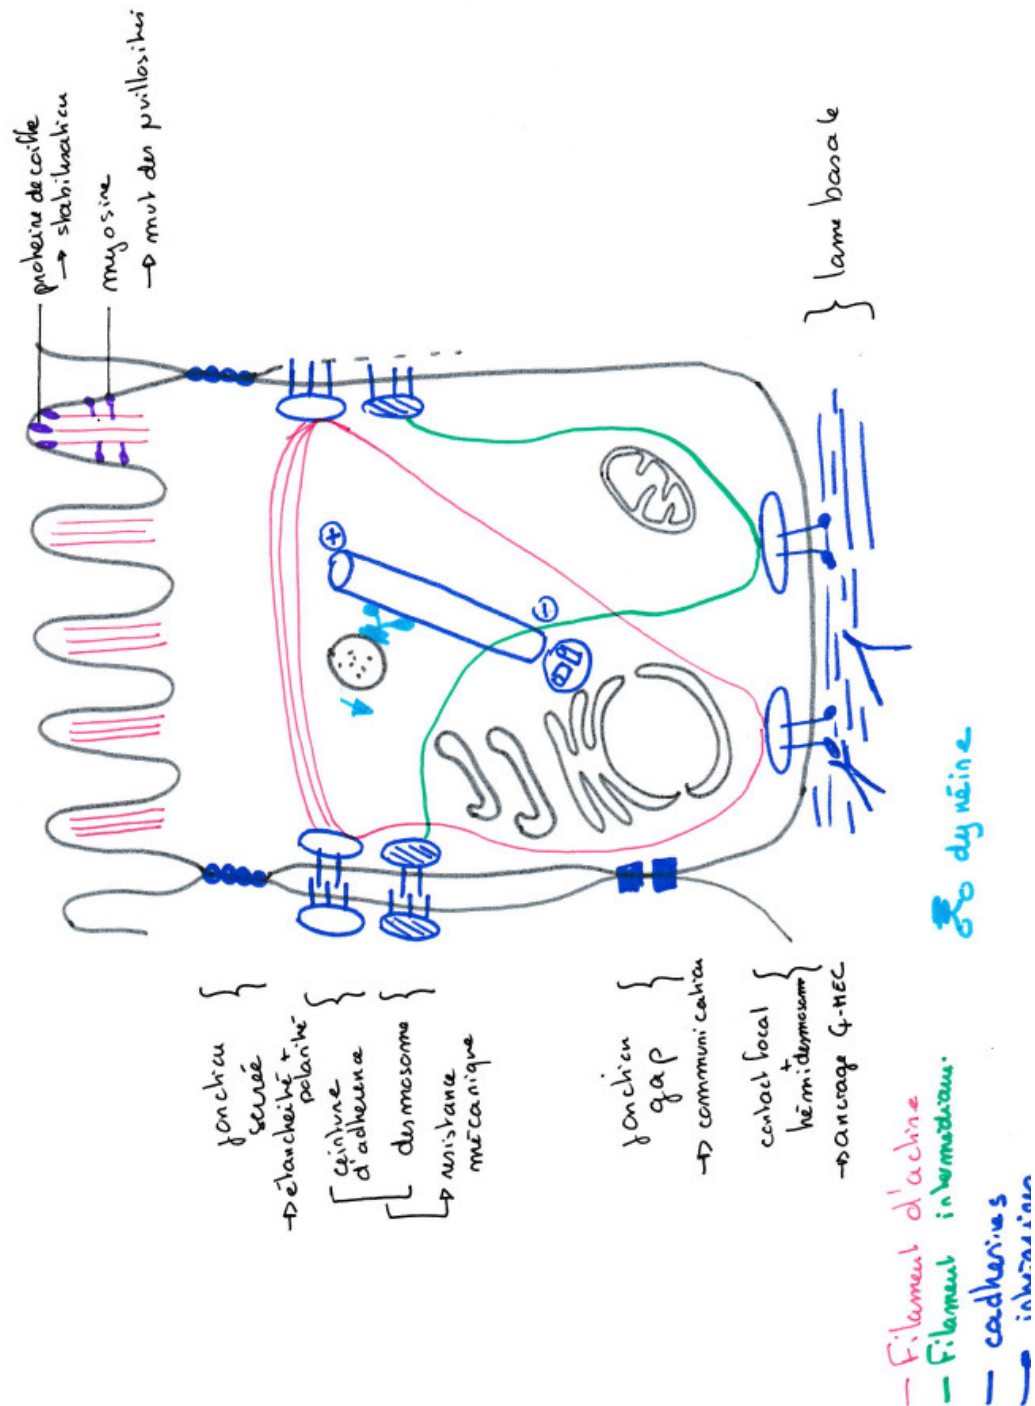 protéine de coiffe
→ stabilisation
myosine
→ mvt des villosités
jonction
serrée
→ étanchéité +
polarité
ceinture
d'adhérence
desmosome
→ résistance
mécanique
jonction
gap
→ communication
contact focal
+
hémidesmosome
→ ancrage C-MEC
} lame basale
+
-
dynéine
— Filament d'actine
— Filament intermédiaire.
— cadhérines
— intégrines